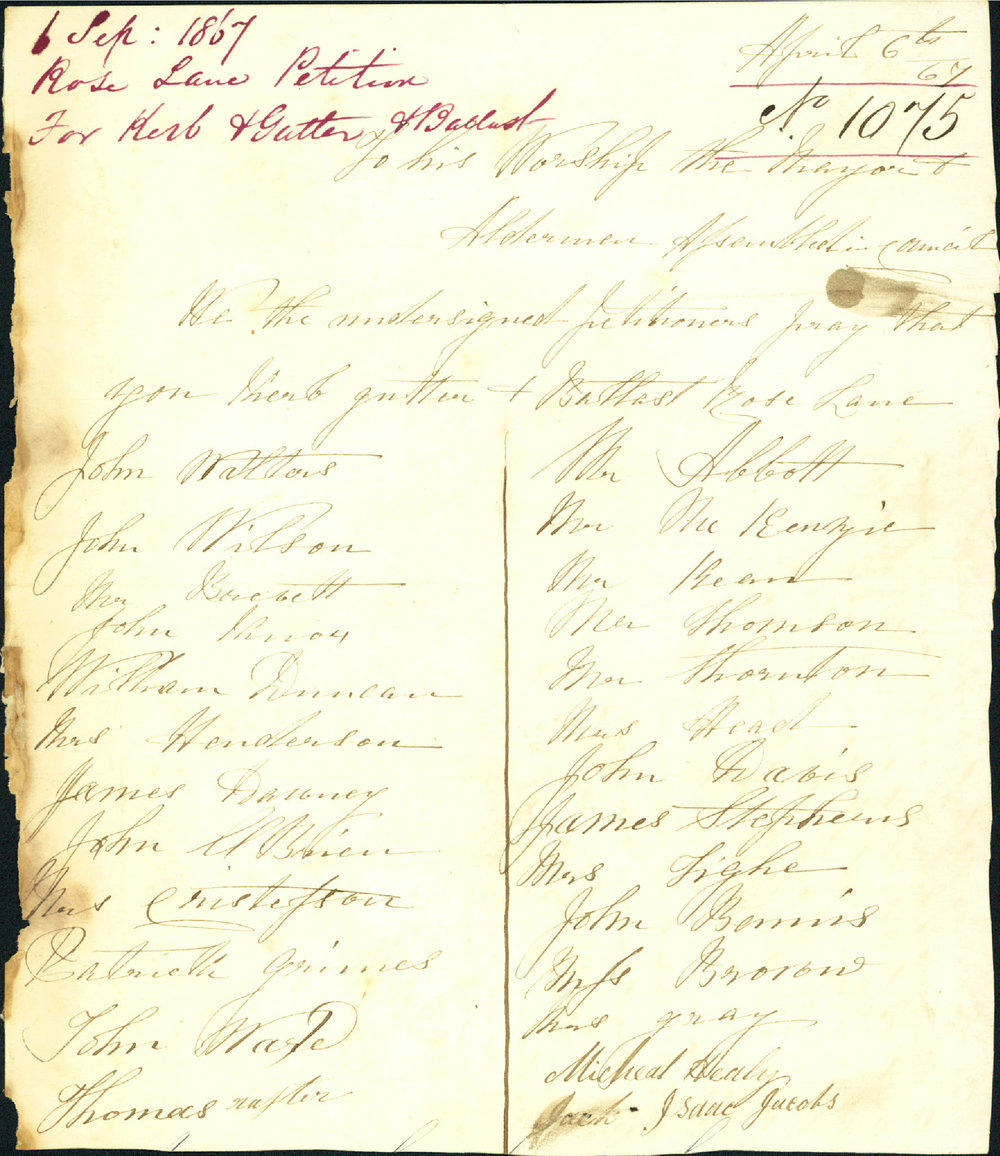 6 Sep: 1867
Rose Lane Petition
For Kerb & Gutter & Ballast
April 6th
67
No 1075
To his Worship the Mayor &
Aldermen Assembled in council
We the undersigned petitioners pray that
you Kerb gutter & Ballast Rose Lane
John Walters
John Wilson
Mr
John Knox
William Duncan
Mrs Henderson
James Dawney
John O Brien
Mrs Cristefson
Patrick Grimes
John Ward
Thomas rafter
Mr Abbott
Mr Mc Kenzie
Mr Kean
Mr Thomson
Mr Thornton
Mrs Head
John Davis
James Stephens
Mrs Tighe
John Bemis
Mrs Brown
Mrs gray
Micheal Healy
Jack Isaac Jacobs